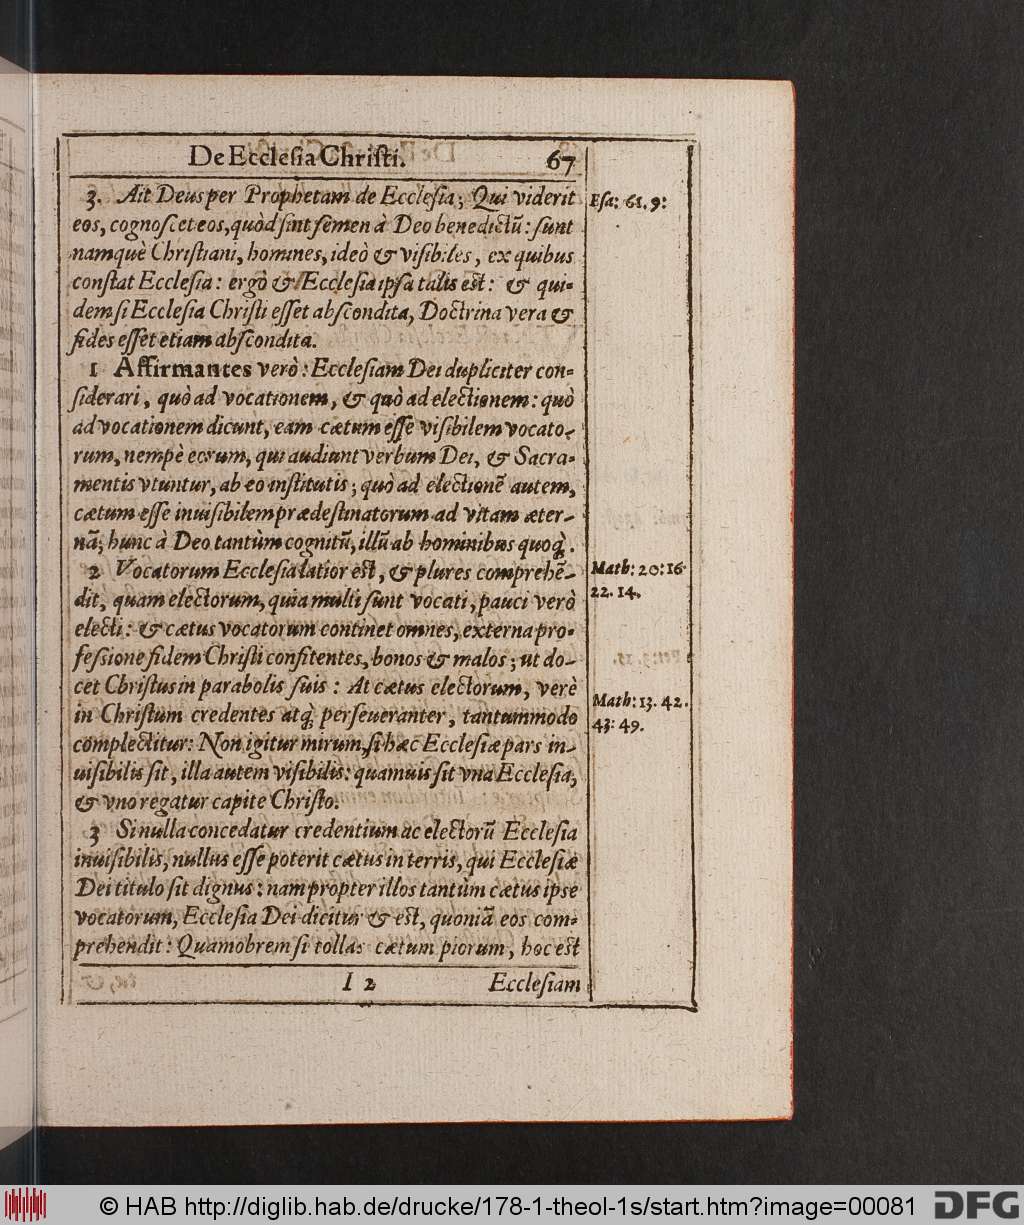 De Ecclesia Christi. 67
3. Ait Deus per Prophetam de Ecclesia; Qui viderit
eos, cognoscet eos, quòd sint semen à Deo benedictũ: sunt
namquè Christiani, homines, ideò & visibiles, ex quibus
constat Ecclesia: ergò & Ecclesia ipsa talis est: & qui-
dem si Ecclesia Christi esset abscondita, Doctrina vera &
fides esset etiam abscondita.
Esa: 61. 9:
1 Affirmantes verò: Ecclesiam Dei dupliciter con-
siderari, quò ad vocationem, & quò ad electionem: quò
ad vocationem dicunt, eam cætum esse visibilem vocato-
rum, nempè eorum, qui audiunt verbum Dei, & Sacra-
mentis vtuntur, ab eo institutis; quò ad electionẽ autem,
cætum esse inuisibilem prædestinatorum ad vitam æter-
nã; hunc à Deo tantùm cognitũ, illũ ab hominibus quoq̨.
2 Vocatorum Ecclesia latior est, & plures comprehẽ-
dit, quam electorum, quia multi sunt vocati, pauci verò
electi: & cætus vocatorum continet omnes, externa pro-
fessione fidem Christi confitentes, bonos & malos; ut do-
cet Christus in parabolis suis: At cætus electorum, verè
in Christum credentes atq̨ perseueranter, tantummodo
complectitur: Non igitur mirum, si hæc Ecclesiæ pars in-
uisibilis sit, illa autem visibilis: quamuis sit vna Ecclesia,
& vno regatur capite Christo.
Math: 20: 16
22. 14.
Math: 13. 42.
43: 49.
3 Si nulla concedatur credentium ac electorũ Ecclesia
inuisibilis, nullus esse poterit cætus in terris, qui Ecclesiæ
Dei titulo sit dignus: nam propter illos tantùm cætus ipse
vocatorum, Ecclesia Dei dicitur & est, quoniã eos com-
prehendit: Quamobrem si tollas cætum piorum, hoc est
I 2 Ecclesiam
© HAB http://diglib.hab.de/drucke/178-1-theol-1s/start.htm?image=00081 DFG